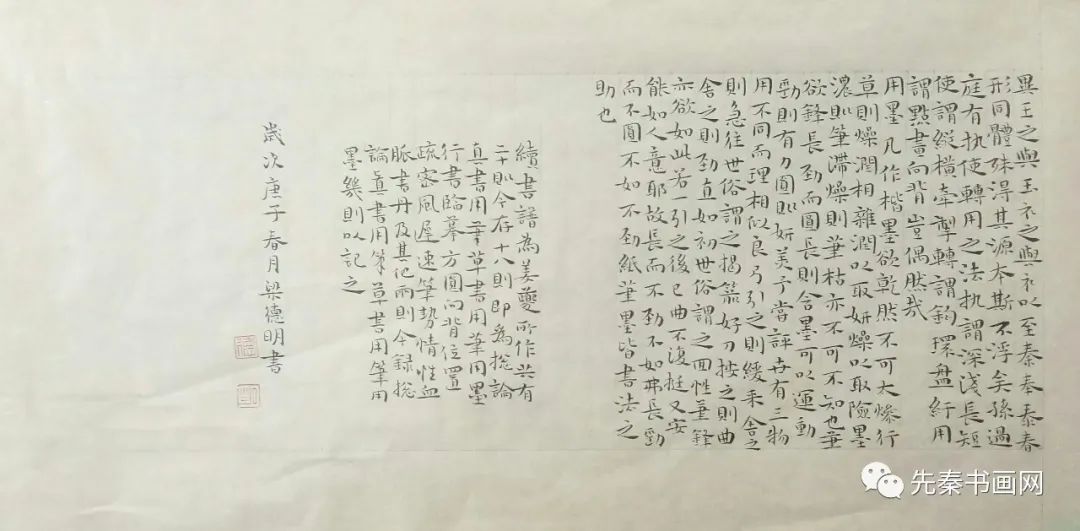 異王之與玉衣之與衤以至秦奉泰春
形同體殊得其源本斯不浮矣孫過
庭有执使轉用之法执謂深淺長短
使謂縱橫牽掣轉謂鉤環盤紆用
謂點畫向背豈偶然哉
用墨凡作楷墨欲乾然不可太燥行
草則燥潤相雜潤以取妍燥以取險墨
濃則筆滯燥則筆枯亦不可不知也筆
欲鋒長勁而圓長則含墨可以運動
勁則有力圓則妍美予嘗評世有三物
用不同而理相似良弓引之則緩來舍之
則急往世俗謂之揭箭好刀按之則曲
舍之則勁直如初世俗謂之回性筆鋒
亦欲如此若一引之後已曲不復挺又安
能如人意耶故長而不勁不如弗長勁
而不圓不如不勁紙筆墨皆書法之
助也
續書譜為姜夔所作共有
二十則今存十八則即為總論
真書用筆草書用筆用墨
行書臨摹方圓向背位置
疏密風度遲速筆勢情性血
脈書丹及其他兩則今録總
論真書用筆草書用筆用
墨幾則以記之
歲次庚子春月梁德明書
先秦书画网